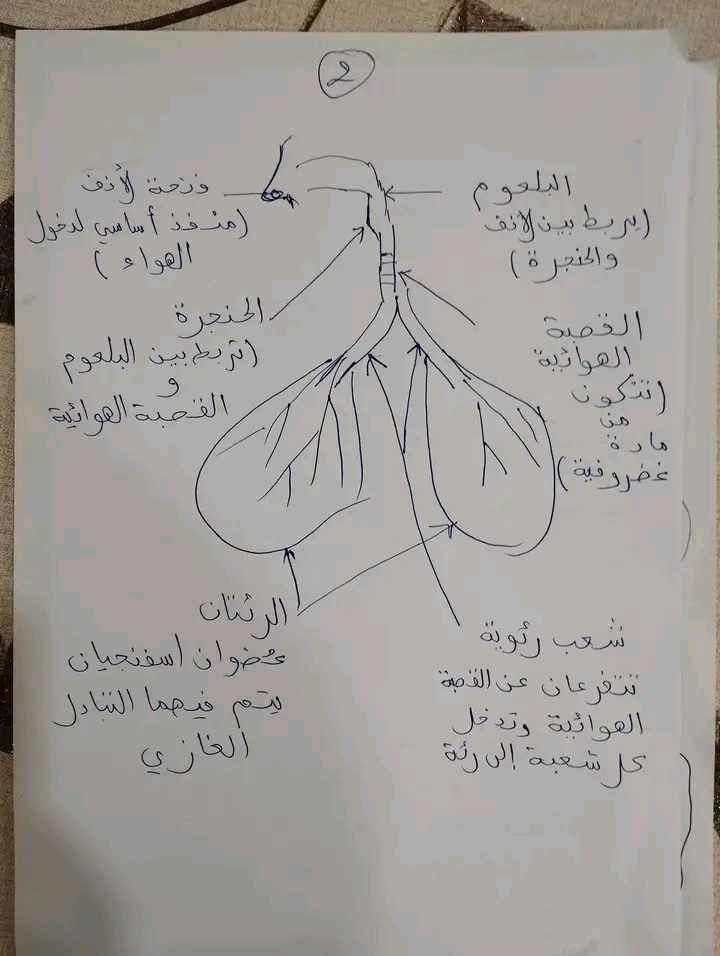 2
فتحة الأنف
(منفذ أساسي لدخول
الهواء)
البلعوم
(يربط بين الأنف
والحنجرة)
الحنجرة
(تربط بين البلعوم
و
القصبة الهوائية
القصبة
الهوائية
(تتكون
من
مادة
غضروفية)
الرئتان
عضوان اسفنجيان
يتم فيهما التبادل
الغازي
شعب رئوية
تتفرعان عن القصبة
الهوائية وتدخل
كل شعبة إلى رئة